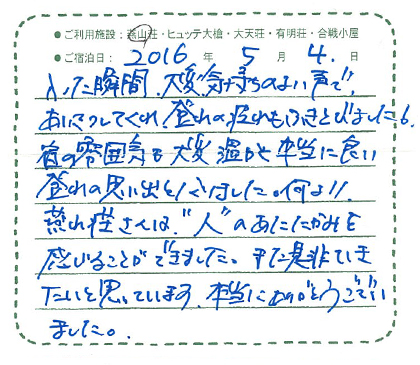 ●ご利用施設：燕山荘・ヒュッテ大槍・大天荘・有明荘・合戦小屋
●ご宿泊日：2016年 5月 4.日
入った瞬間、大変気持ちのよい声で、
あいさつしてくれ、登れの疲れもふきとびましたし
宿の雰囲気も大変温かく本当に良い
登れの思い出をつくれました。何より、
燕山荘さんは、"人"のあたたかみを
感じることができました。また是非ていき
たいと思っています。本当にありがとうござい
ました。